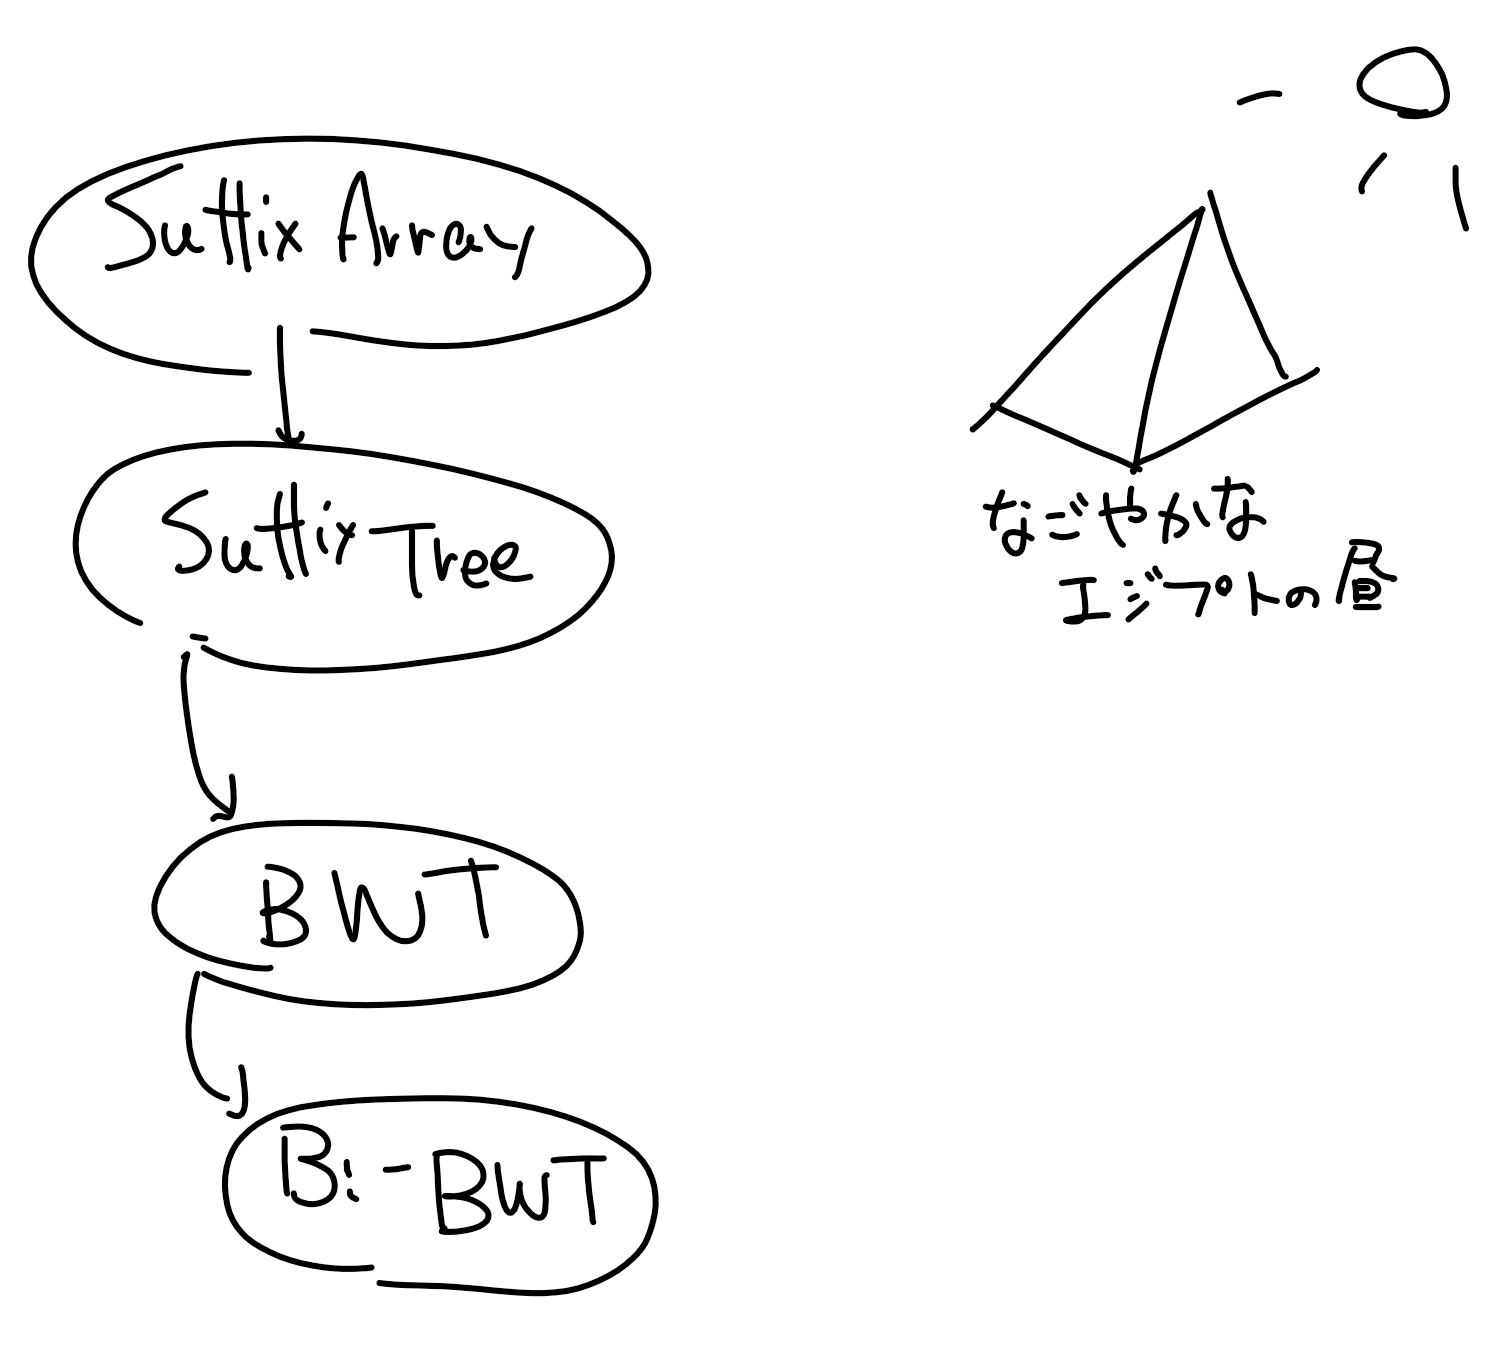 Suffix Array
Suffix Tree
BWT
Bi-BWT
なごやかな
エジプトの昼